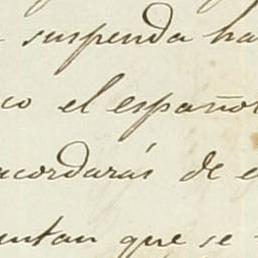 suspenda ha
co el español
acordarás de e
untan que se